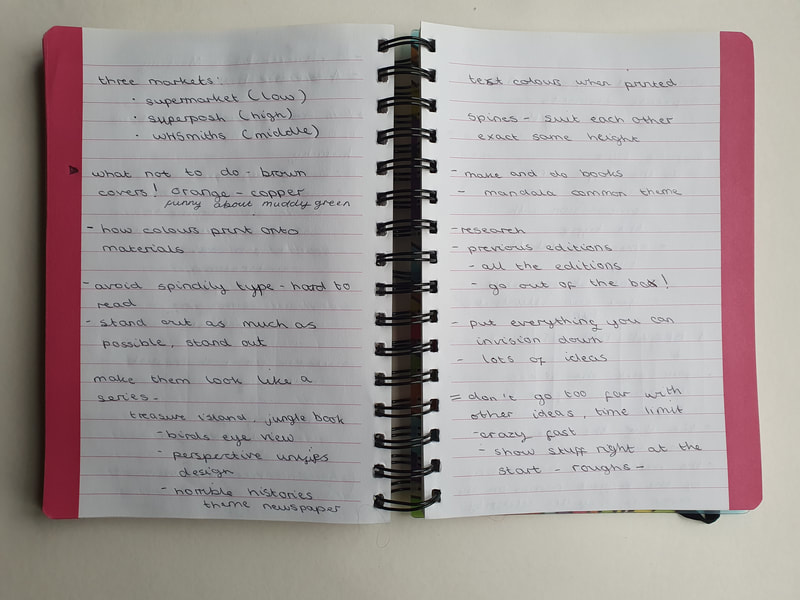 three markets:
· supermarket (low)
· superposh (high)
· WHSmiths (middle)
what not to do - brown
covers! orange - copper
funny about muddy green
- how colours print onto
materials
- avoid spindily type - hard to
read
- stand out as much as
possible, stand out
make them look like a
series -
treasure island, jungle book
- birds eye view
- perspective unifies
design
- horrible histories
theme newspaper
test colours when printed
spines - suit each other
exact same height
- make and do books
- mandala common theme
- research
- previous editions
- all the editions
- go out of the box!
- put everything you can
invision down
- lots of ideas
= don't go too far with
other ideas, time limit
- crazy fast
- show stuff right at the
start - roughs -